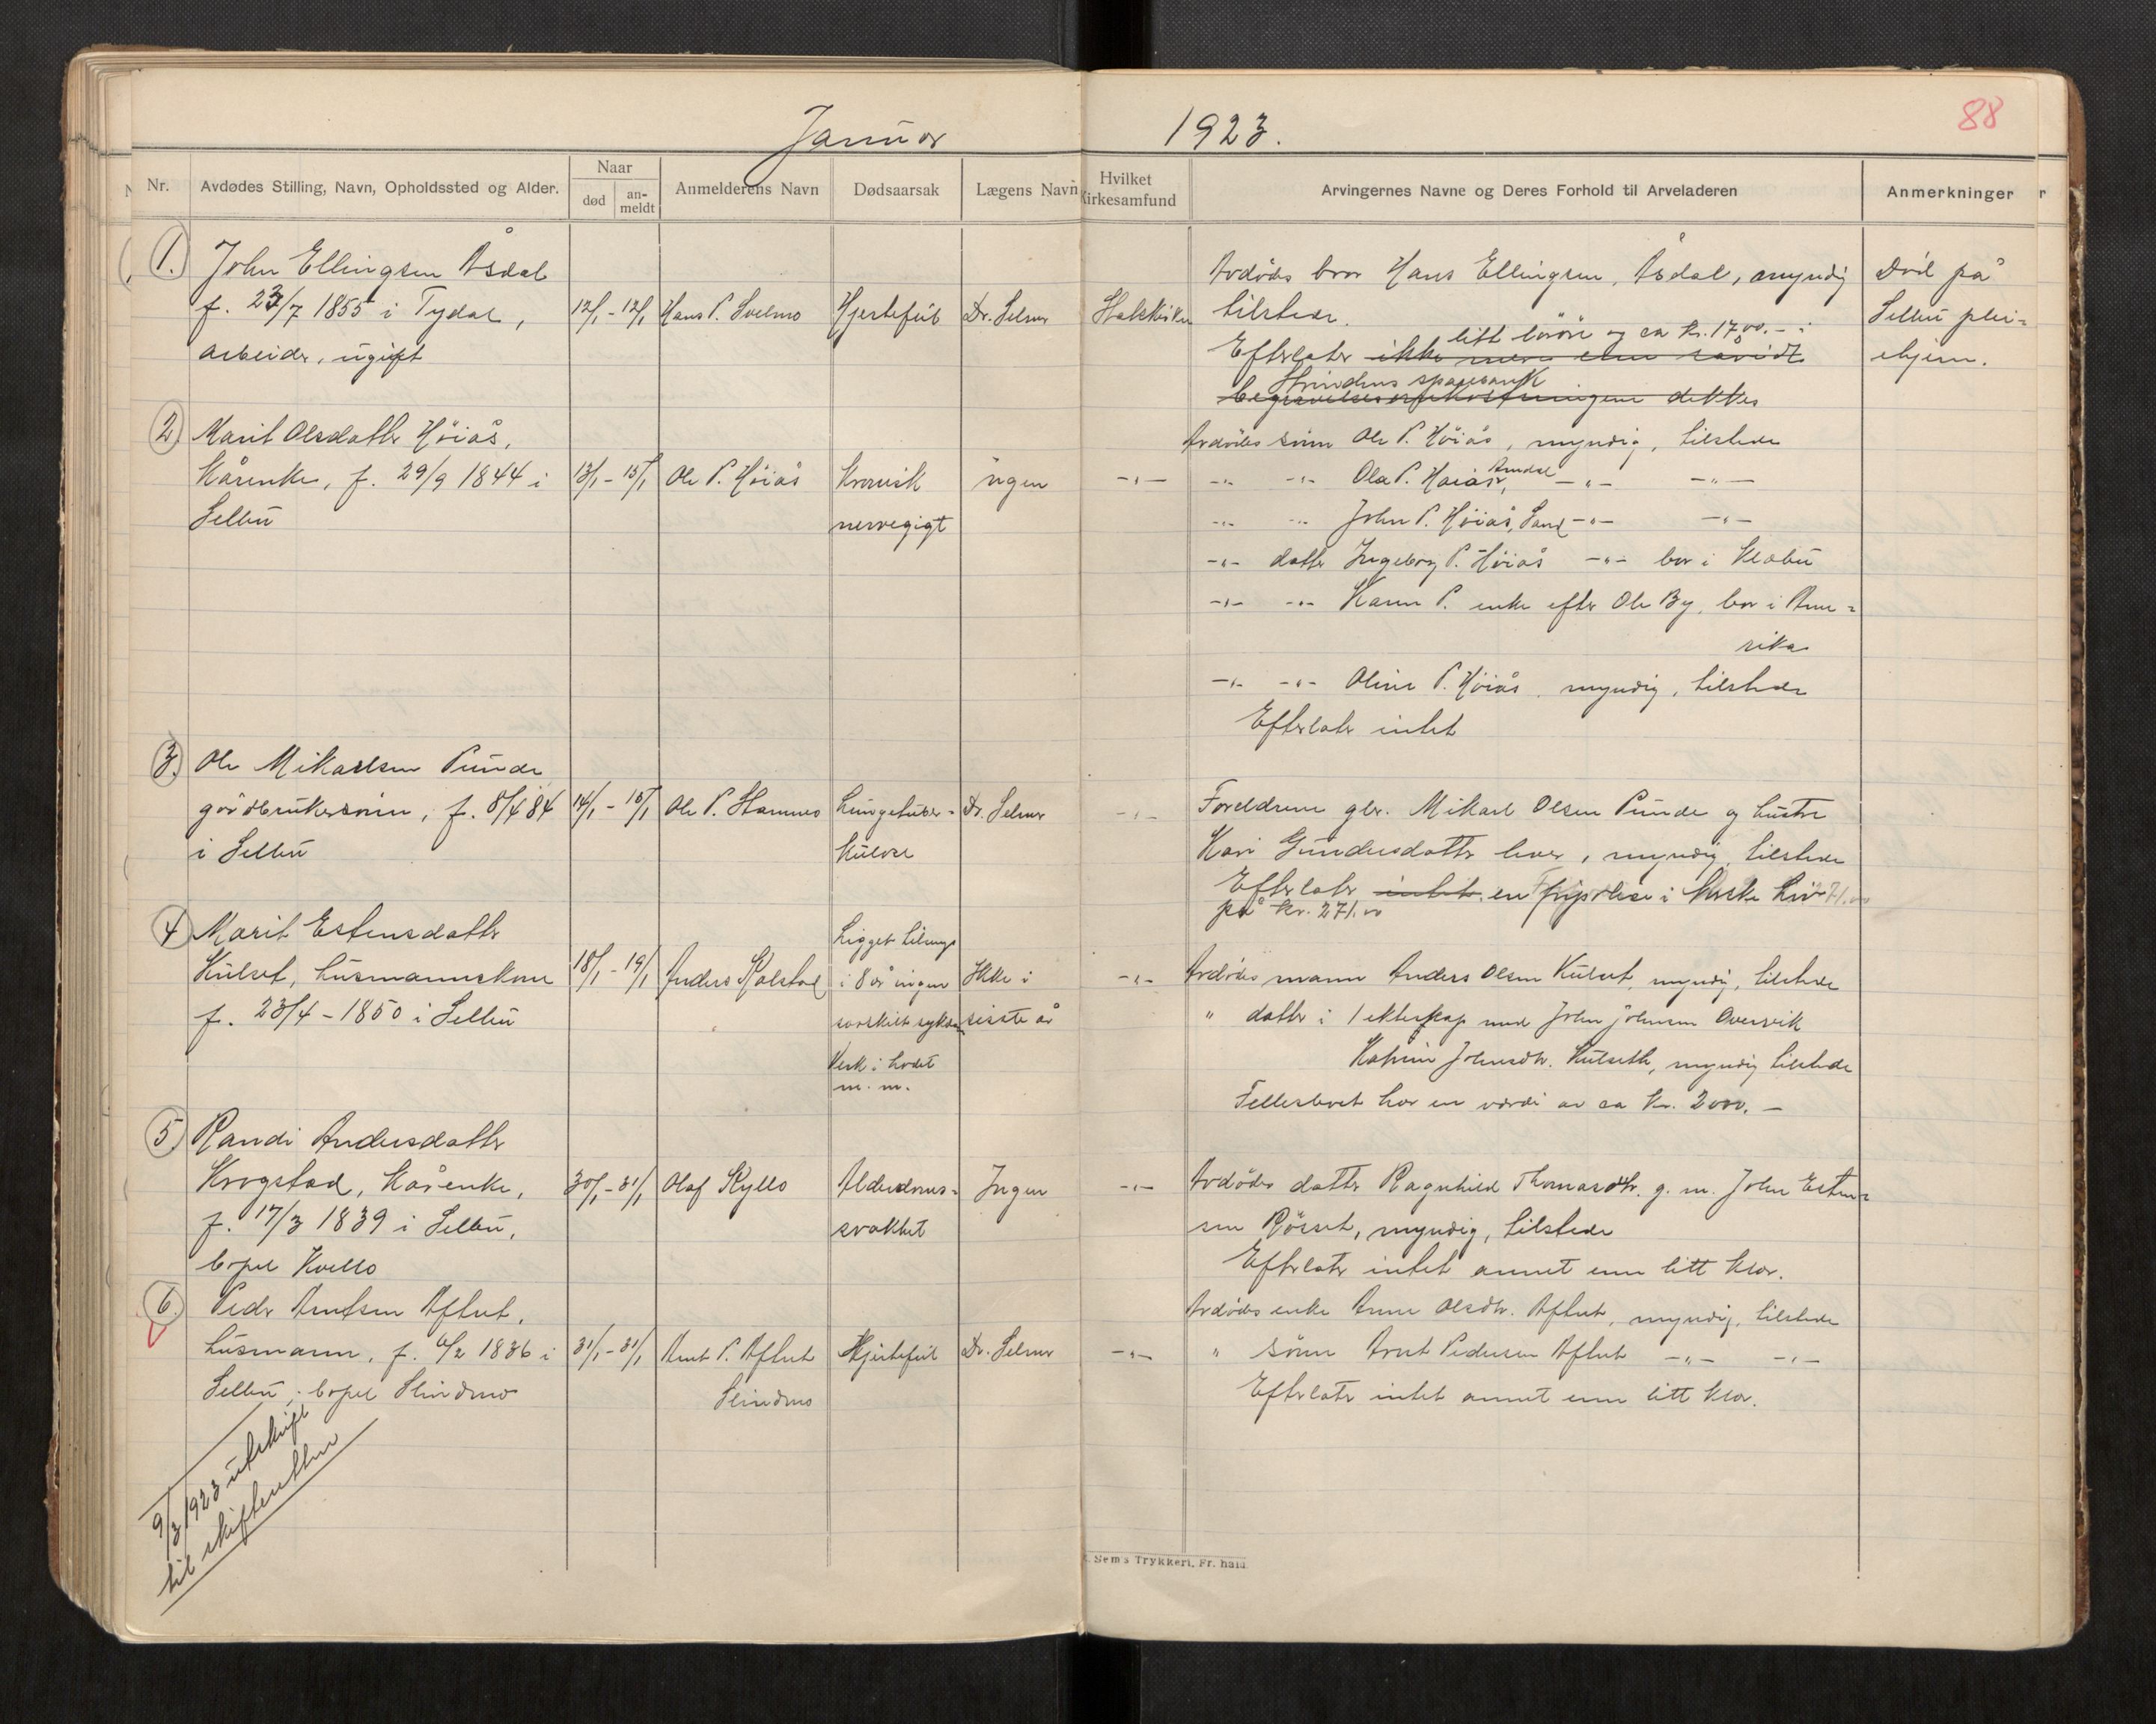 Januar 1923.
88
Nr.
Avdødes Stilling, Navn, Opholdssted og Alder.
Naar
død
an-
meldt
Anmelderens Navn
Dødsaarsak
Lægens Navn
Hvilket
Kirkesamfund
Arvingernes Navne og Deres Forhold til Arveladeren
Anmerkninger
1. John Ellingsen Åsdal
f. 23/7 1855 i Tydal,
arbeider, ugift
12/1 - 12/1
Hans P. Svelmo
Hjertefeil
Dr. Selmer
Statskirken
Avdødes bror Hans Ellingsen, Åsdal, myndig
tilstede.
litt løsøre og ca kr. 1700.- i
Efterlater ikke mere enn såvidt
Strindens sparebank
begravelsesomkostningene dekkes
Død på
Selbu plei-
ehjem.
2. Marit Olsdatter Höiås,
Kårenke, f. 29/9 1844 i
Selbu
13/1 - 15/1
Ole P. Höiås
Kronisk
nervegigt
ingen
-"-
Avdødes sönn Ole P. Höiås, myndig, tilstede
-"- -"- Ola P. Höiås, Amdal -"- -"-
-"- -"- John P. Höiås, Sand -"- -"-
-"- datter Ingeborg P. Höiås -"- bor i Klæbu
-"- -"- Karen P. enke efter Ole By, bor i Ame-
rika
-"- -"- Oline P. Höiås, myndig, tilstede
Efterlater intet
3. Ole Mikaelsen Punde
gårdbrukersönn, f. 8/4 84
i Selbu
14/1 - 15/1
Ole P. Stamnes
Lungetuber-
kulose
Dr. Selmer
-"-
Foreldrene gbr. Mikael Olsen Punde og hustru
Kari Gundersdatter lever, myndig, tilstede
Efterlater intet. en fripolise i Norske Liv 271.00
på kr. 271.00
4 Marit Estensdatter
Kulset, husmannskone
f. 23/4 - 1850 i Selbu
18/1 - 19/1
Anders Rolstad
Ligget tilsengs
i 8 år ingen
særskilt sykdom
Verk i hodet
m. m.
Ikke i
sisste år
-"-
Avdødes mann Anders Olsen Kulset, myndig, tilstede
" datter i 1 ekteskap med John Johnsen Overvik
Katrine Johnsdtr. Kulseth, myndig tilstede
Felleseboet har en værdi av ca kr. 2000.-
5. Randi Andersdatter
Krogstad, Kårenke,
f. 17/3 1839 i Selbu,
bopel Kvello
30/1 - 31/1
Olaf Kyllo
Alderdoms-
svakhet
Ingen
-"-
Avdødes datter Ragnhild Thomasdtr. g. m. John Esten-
sen Rösset, myndig, tilstede
Efterlater intet annet enn litt klær.
6. Peder Arntsen Aftret,
husmann, f. 6/2 1836 i
Selbu, bopel Slindmo
31/1 - 31/1
Arnt P. Aftret
Slindmo
Hjertefeil
Dr. Selmer
-"-
Avdödes enke Anne Olsdtr. Aftret, myndig, tilstede
" sönn Arnt Pedersen Aftret -"- -"-
Efterlater intet annet enn litt klær.
9/3 1923 utskrift
til skifteretten
Sem's Trykkeri, Fr. hald